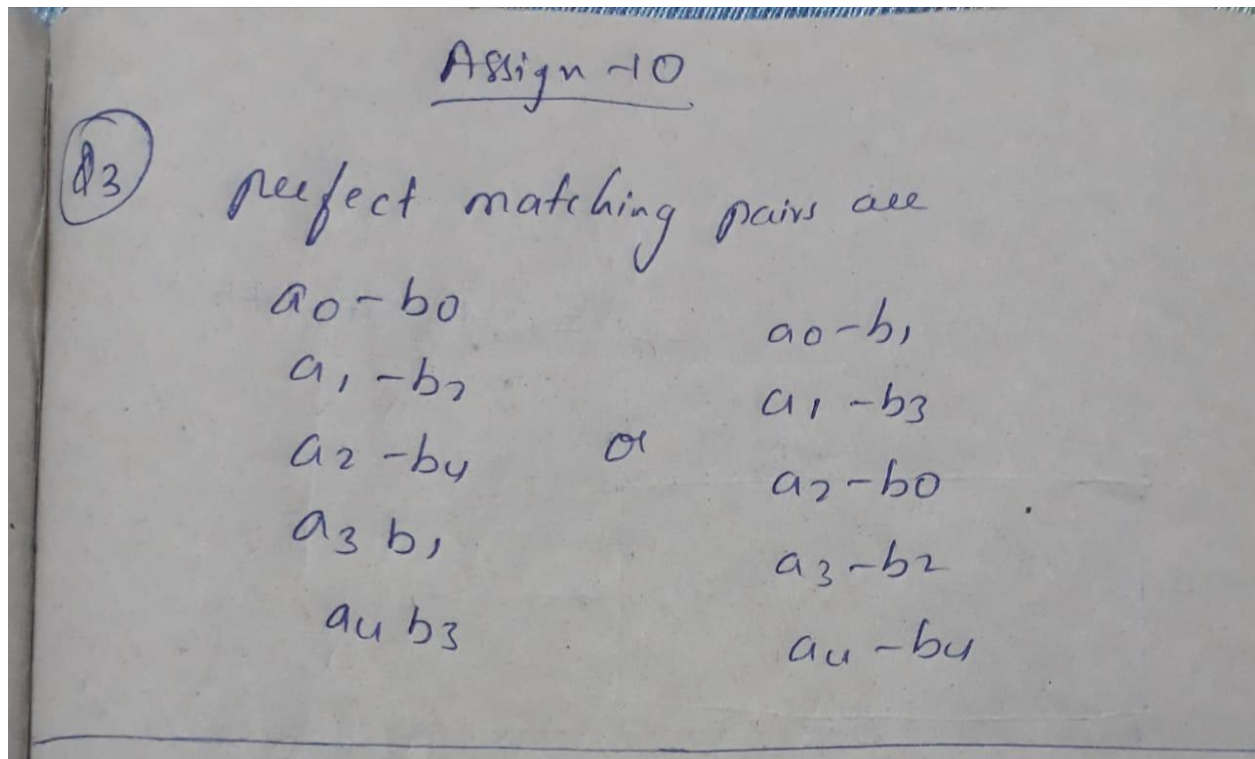 Assign-10
Q3
perfect matching pairs are
a0-b0
a1-b2
a2-b4
a3 b1
a4 b3
or
a0-b1
a1-b3
a2-b0
a3-b2
a4-b4